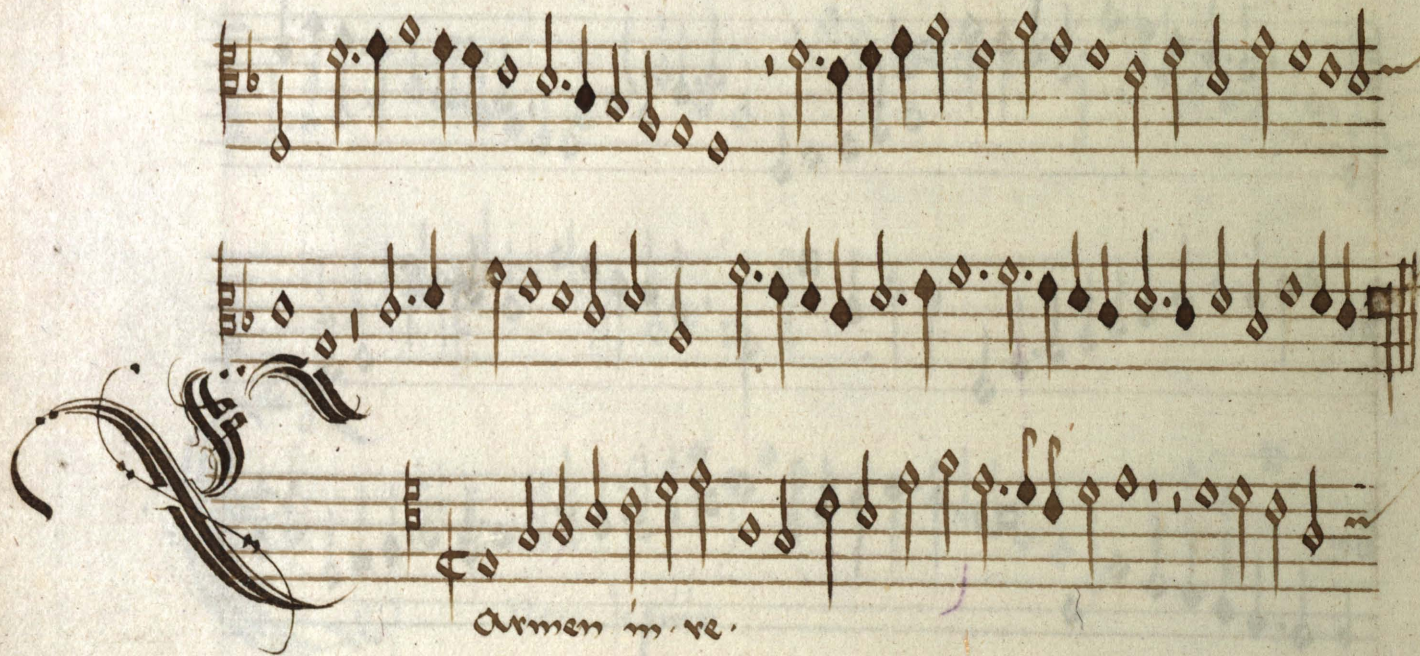 Carmen in re.